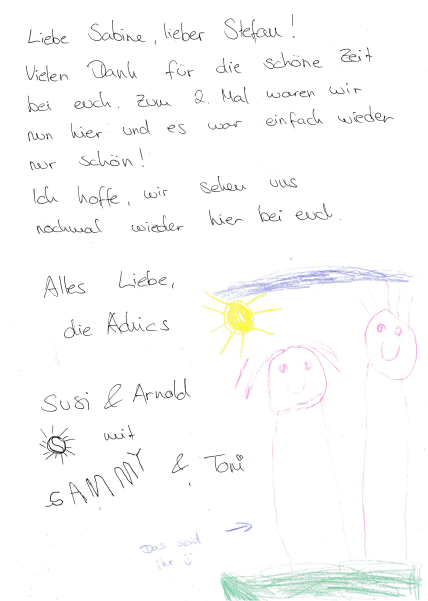 Liebe Sabine, lieber Stefan!
Vielen Dank für die schöne Zeit
bei euch. Zum 2. Mal waren wir
nun hier und es war einfach wieder
nur schön!
Ich hoffe, wir sehen uns
nochmal wieder hier bei euch.
Alles Liebe,
die Adrics
Susi & Arnold
mit
SAMMY & Toni
Das seid
ihr